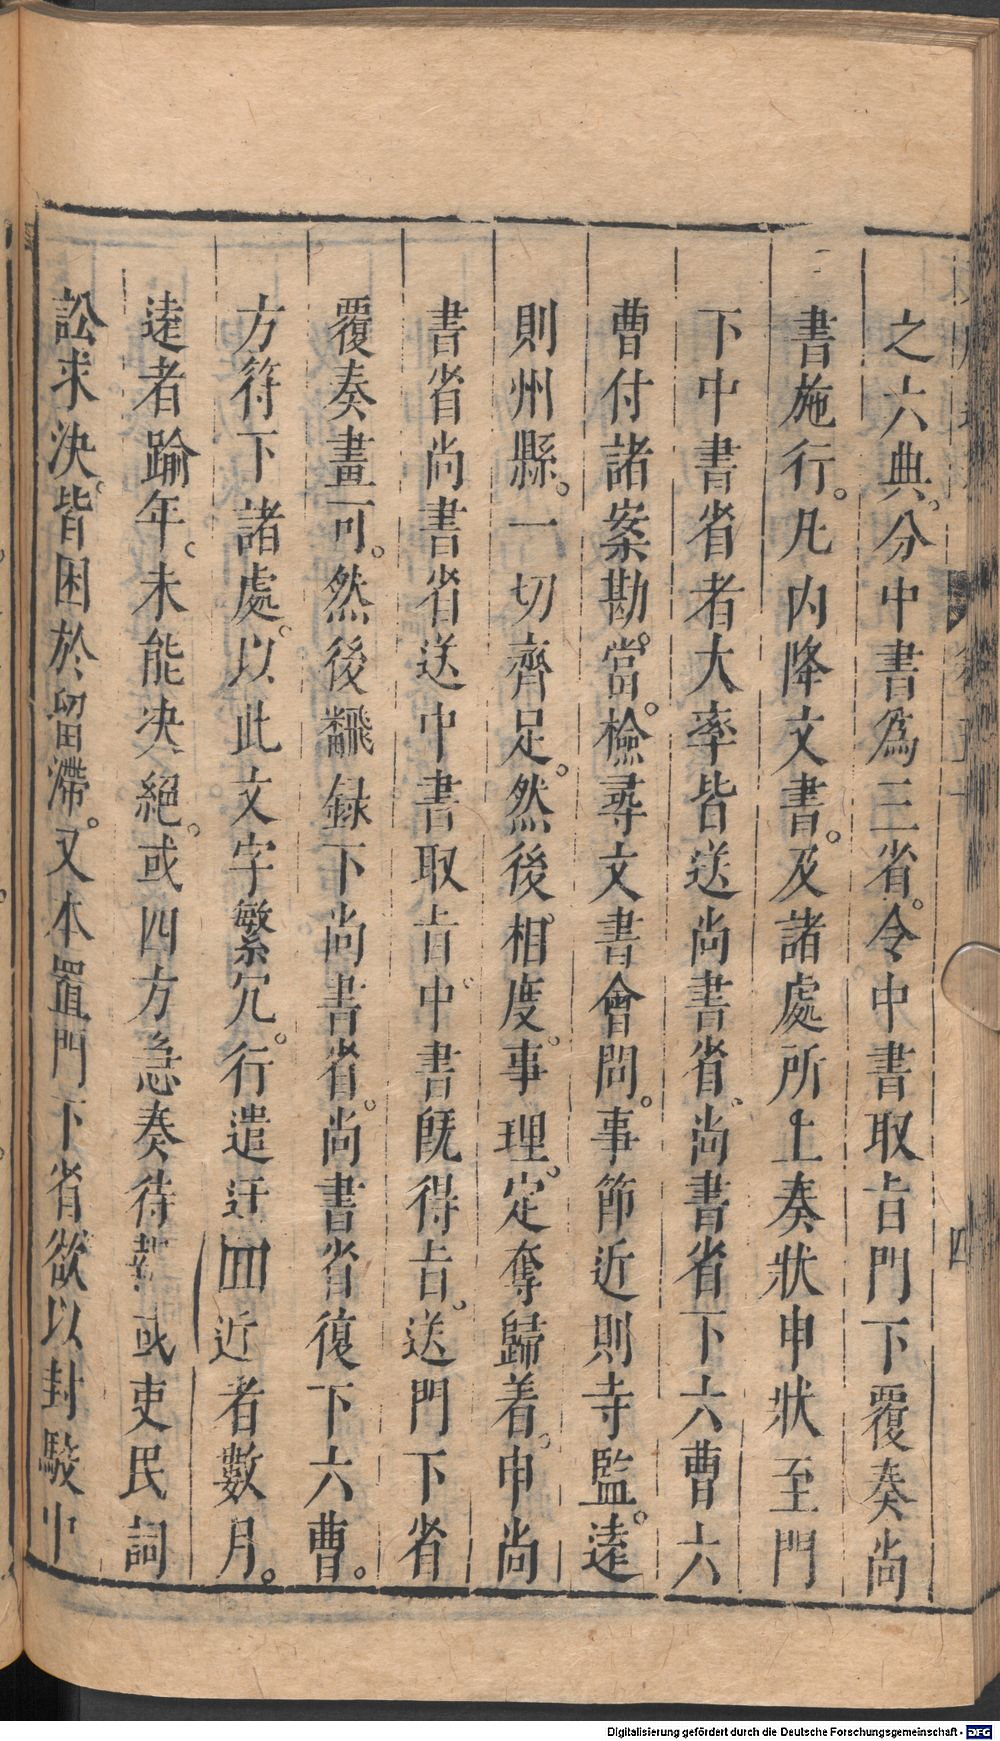 之六典。分中書爲三省。令中書取㫖門下覆奏尚
書施行。凡内降文書。及諸處所上奏狀申狀至門
下中書省者大率皆送尚書省。尚書省下六曹六
曹付諸案勘當。檢尋文書會問。事節近則寺監。遠
則州縣。一切齊足。然後相度。事理。定奪歸着。申尚
書省尚書省送中書取㫖。中書既得㫖。送門下省
覆奏畫可。然後飜録下尚書省。尚書省復下六曹。
方符下諸處。以此文字繁冗。行遣迂回近者數月。
遠者踰年。未能决絕。或四方急奏待報或吏民詞
訟求決。皆困於留滯。又本置門下省欲以封駮中
四
Digitalisierung gefördert durch die Deutsche Forschungsgemeinschaft - DFG